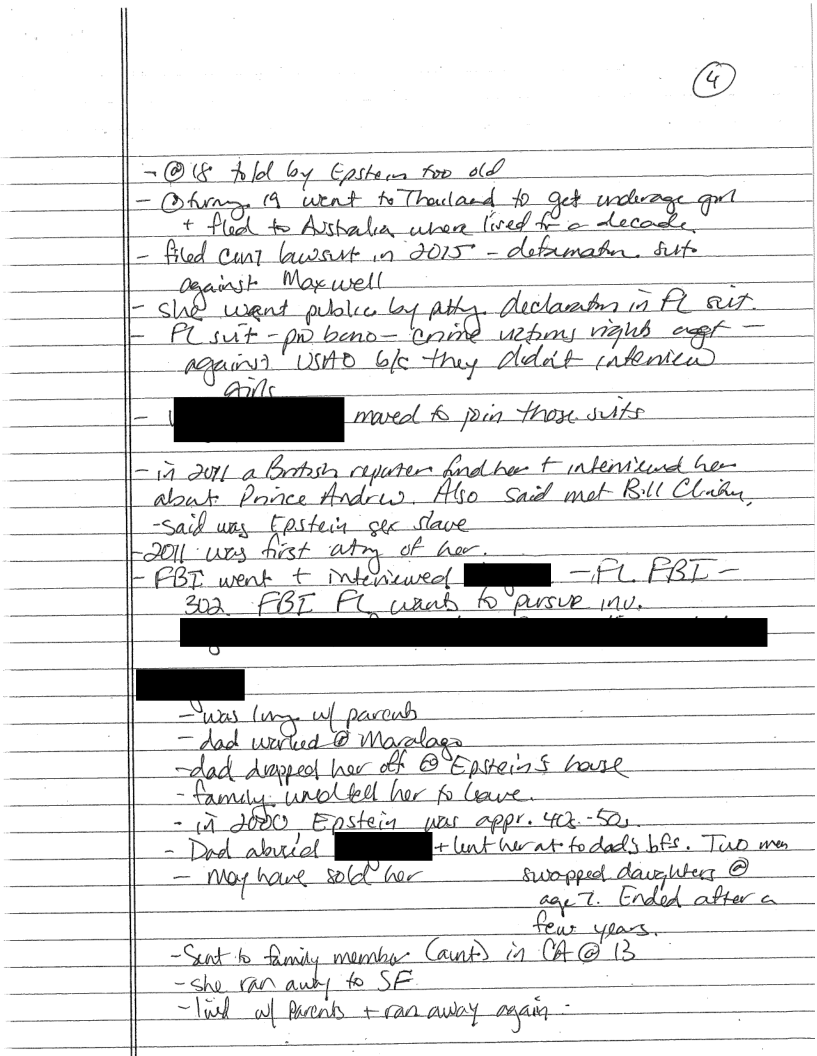 4
- @ 18 told by Epstein too old
- @ turng 19 went to Thailand to get underage girl
+ fled to Australia where lived fr a decade.
- filed civil lawsuit in 2015 - defamatn. suit
against Maxwell
- she went public by atty. declaratn in FL suit.
- FL suit - pro bono - crime victims rights -
against USAO b/c they didn't interview
girls
- moved to join those suits
- in 2011 a British reporter find her + interviewed her
about Prince Andrew. Also said met Bill Clinton.
- Said was Epstein sex slave
- 2011 was first of her.
- FBI went + interviewed - FL FBI -
302 FBI FL wants to pursue inv.
- was lvng w/ parents
- dad worked @ Maralago
- dad dropped her off @ Epstein's house
- family tell her to leave.
- in 2000, Epstein was appr. 40s-50s.
- Dad abused + lent her out to dad's bfs. Two men
- may have sold her swapped daughters @
age 7. Ended after a
few years.
- Sent to family member (aunt) in CA @ 13
- she ran away to SF
- lived w/ parents + ran away again -